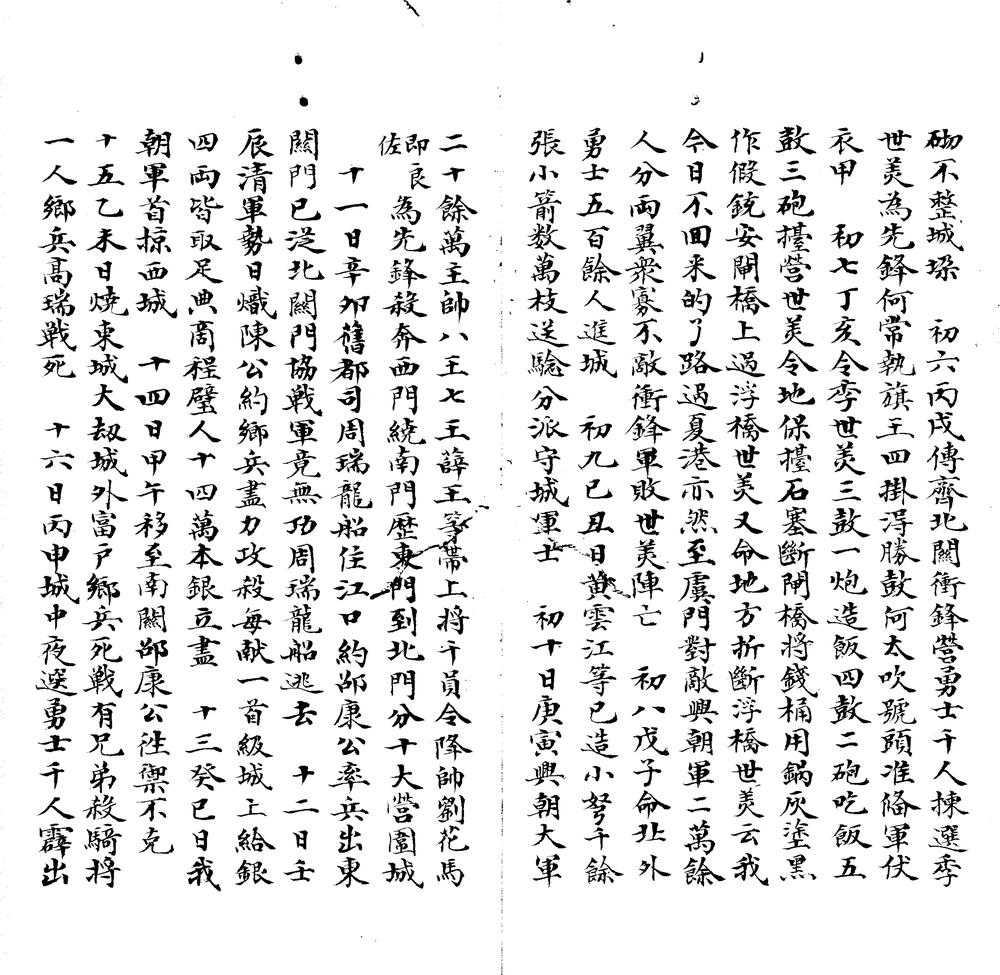 砌不整城垜　初六丙戌傳齊北關衝鋒營勇士千人揀選季
世美為先鋒何常執旗王四掛淂勝鼓何太吹號頭准俻軍伏
衣甲　初七丁亥令季世美三鼓一炮造飯四鼓二砲吃飯五
鼓三砲擡營世美令地保擡石塞斷閘橋將錢桶用鍋灰塗黑
作假銃安閘橋上過浮橋世美又命地方折斷浮橋世美云我
今日不回来的了路過夏港亦然至虞門對敵興朝軍二萬餘
人分両翼衆寡不敵衝鋒軍敗世美陣亡　初八戊子命北外
勇士五百餘人進城　初九己丑日黄雲江等已造小弩千餘
張小箭数萬枝送騐分派守城軍士　初十日庚寅興朝大軍
二十餘萬主帥八王七王薛王等帶上将千員令降帥劉花馬
即良佐為先鋒殺奔西門繞南門歷東門到北門分十大營圍城
十一日辛夘舊都司周瑞龍船住江口約邵康公率兵出東
關門已泛北關門協戦軍竟無功周瑞龍船逃去　十二日壬
辰清軍勢日熾陳公約鄉兵盡力攻殺每献一首級城上給銀
四両皆取足典商程璧人十四萬本銀立盡　十三癸巳日我
朝軍首掠西城　十四日甲午移至南關邵康公徃禦不克
十五乙未日燒東城大刼城外富户鄉兵死戦有兄弟殺騎将
一人鄉兵髙瑞戦死　十六日丙申城中夜選勇士千人霹出